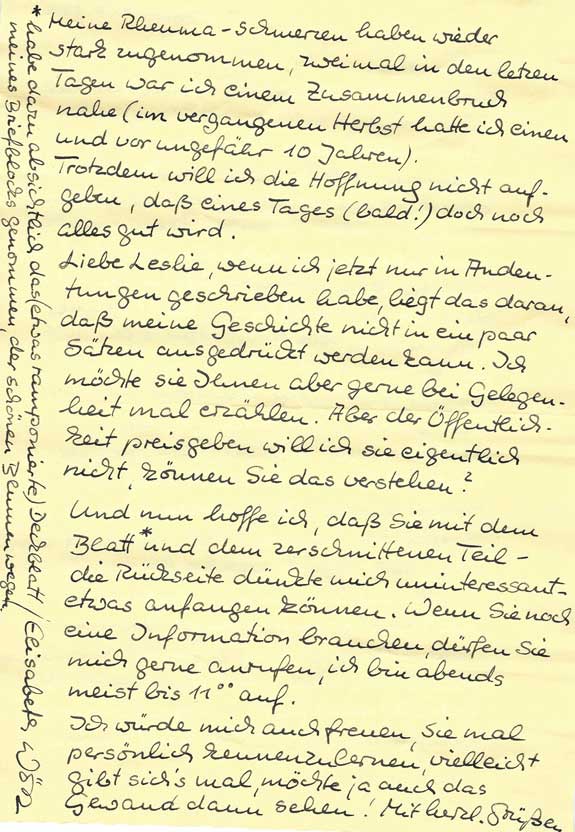 Meine Rheuma-schmerzen haben wieder
stark zugenommen, zweimal in den letzen
Tagen war ich einem Zusammenbruch
nahe (im vergangenen Herbst hatte ich einen
und vor ungefähr 10 Jahren).
Trotzdem will ich die Hoffnung nicht auf-
geben, daß eines Tages (bald!) doch noch
alles gut wird.
Liebe Leslie, wenn ich jetzt nur in Anden-
tungen geschrieben habe, liegt das daran,
daß meine Geschichte nicht in ein paar
Sätzen ausgedrückt werden kann. Ich
möchte sie Ihnen aber gerne bei Gelegen-
heit mal erzählen. Aber der Öffentlich-
keit preisgeben will ich sie eigentlich
nicht, können Sie das verstehen?
Und nun hoffe ich, daß Sie mit dem
Blatt* und dem zerschnittenen Teil -
die Rückseite dünkte mich uninteressant -
etwas anfangen können. Wenn Sie noch
eine Information brauchen, dürfen Sie
mich gerne anrufen, ich bin abends
meist bis 11°° auf.
Ich würde mich auch freuen, Sie mal
persönlich kennenzulernen, vielleicht
gibt sich's mal, möchte ja auch das
Gewand dann sehen! Mit herzl. Grüßen
* habe dazu absichtlich das (etwas ramponierte) Deckblatt / Elisabeth
meines Briefblocks genommen, der schönen Blumen wegen.